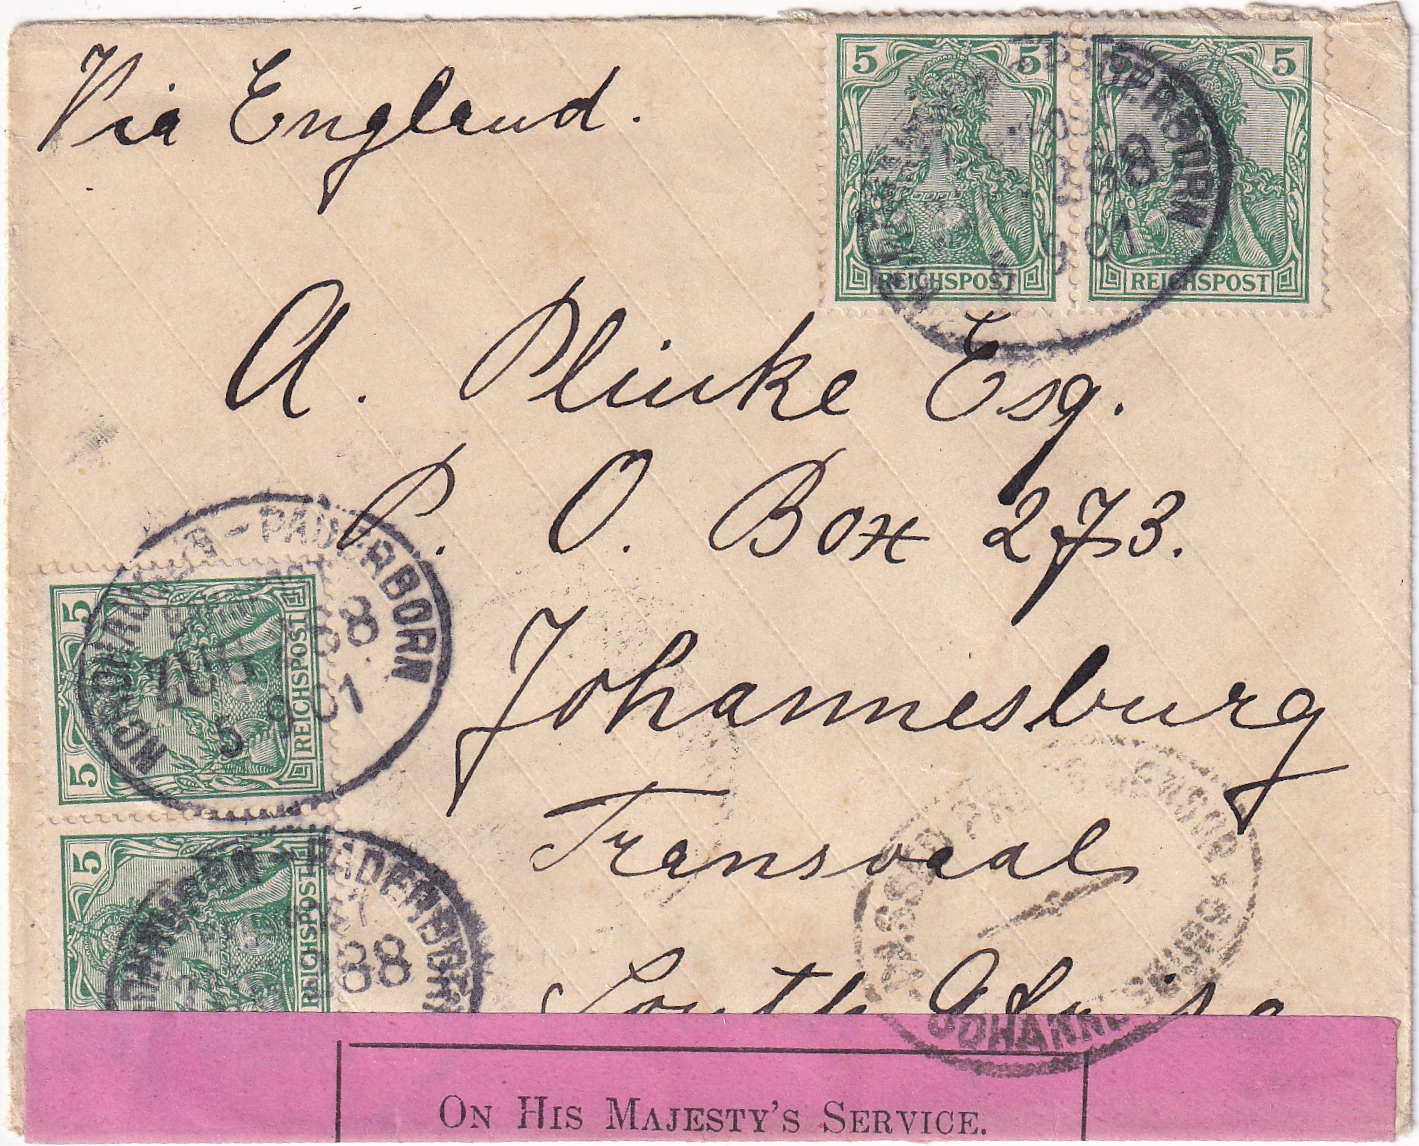 Via England.
5 5
REICHSPOST
5 5
REICHSPOST
PADERBORN
368
9 01
A. Plinke Esq.
P. O. Box 273.
Johannesburg
Transvaal
South Africa
NORDHAUSEN - PADERBORN
BAHNPOST
ZUG 368
5 9 01
5 5
REICHSPOST
5
REICHSPOST
PADERBORN
PASSED PRESS CENSOR
JOHANNESBURG
ON HIS MAJESTY'S SERVICE.